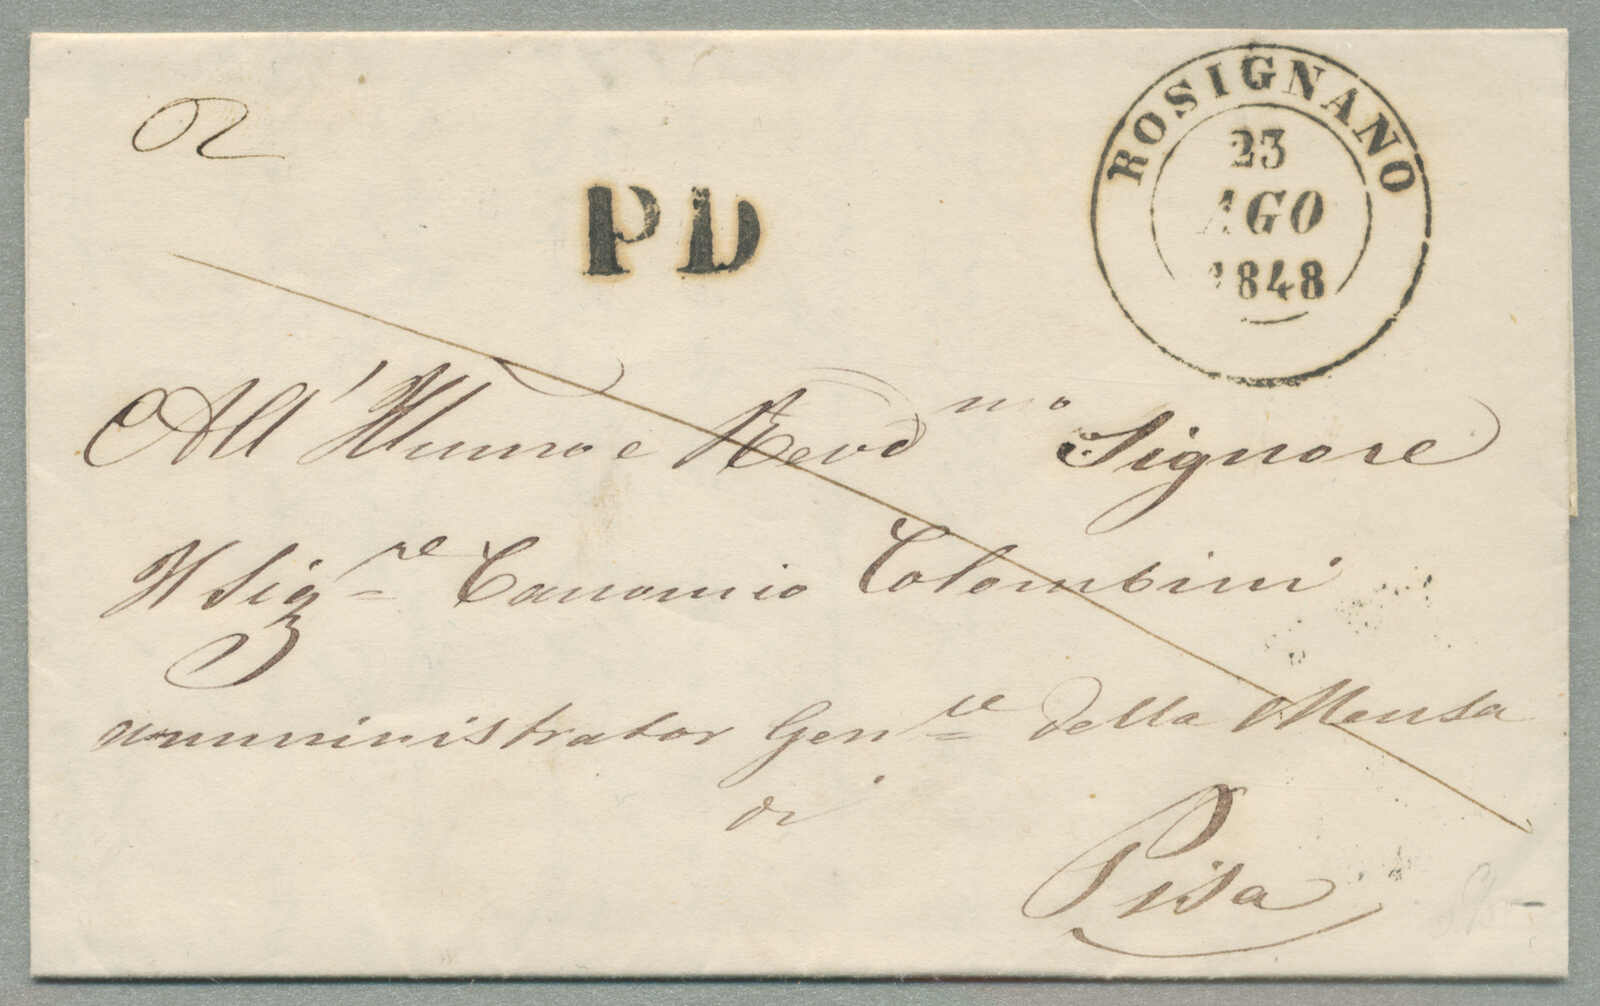 ROSIGNANO
23
AGO
1848
PD
All'Illmo e Revd mo Signore
Il Sig re Canonnio Colombini
amministrator Gen le della Mensa
di
Pisa